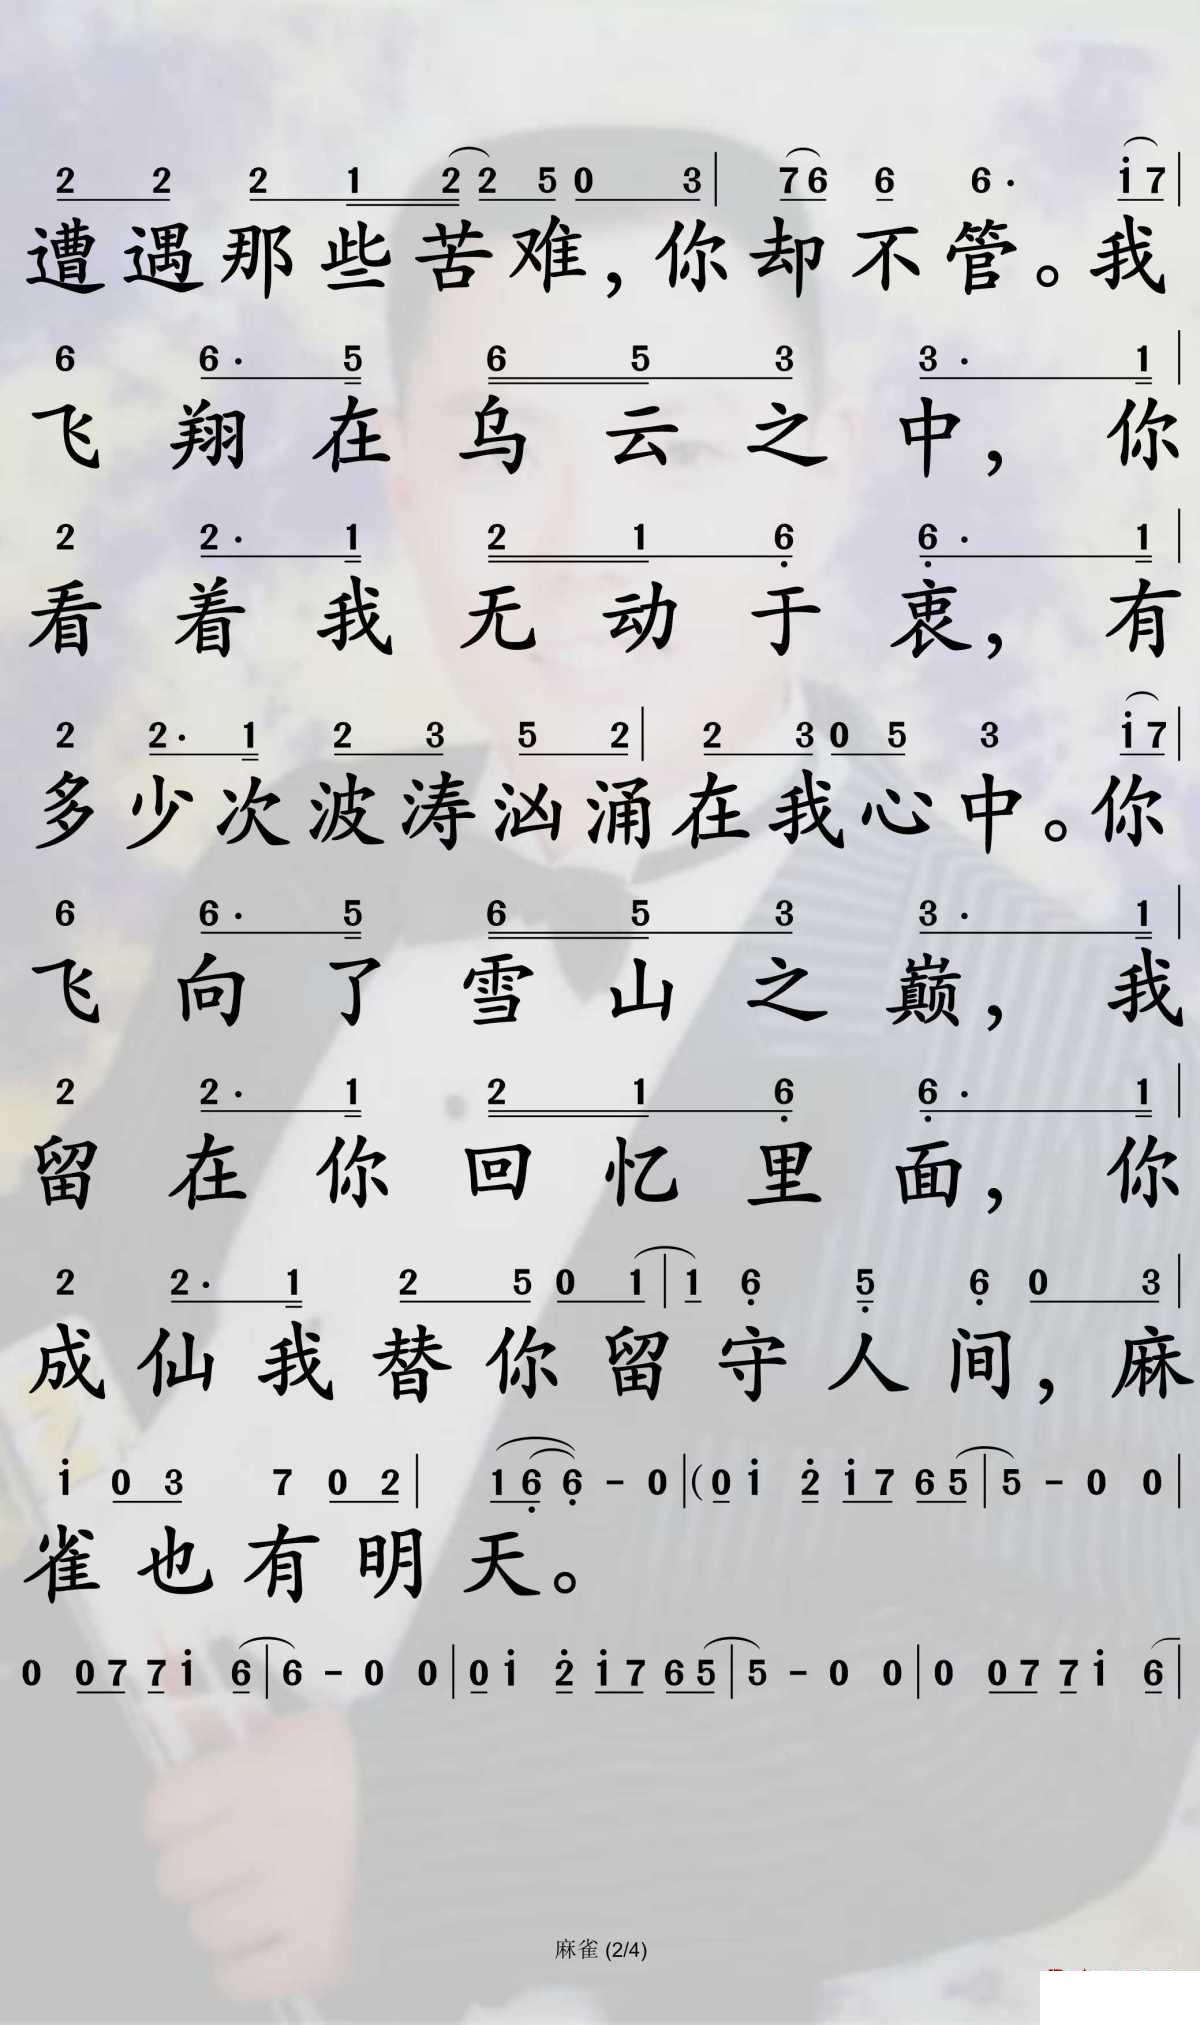 2 2 2 1 2 2 5 0 3 | 7 6 6 6 · i 7 |
遭遇那些苦难，你却不管。我
6 6 · 5 6 5 3 3 · 1 |
飞翔在乌云之中，你
2 2 · 1 2 1 6 6 · 1 |
看着我无动于衷，有
2 2 · 1 2 3 5 2 | 2 3 0 5 3 i 7 |
多少次波涛汹涌在我心中。你
6 6 · 5 6 5 3 3 · 1 |
飞向了雪山之巅，我
2 2 · 1 2 1 6 6 · 1 |
留在你回忆里面，你
2 2 · 1 2 5 0 1 | 1 6 5 6 0 3 |
成仙我替你留守人间，麻
i 0 3 7 0 2 | 1 6 6 - 0 | ( 0 i 2 i 7 6 5 | 5 - 0 0 |
雀也有明天。
0 0 7 7 i 6 | 6 - 0 0 | 0 i 2 i 7 6 5 | 5 - 0 0 | 0 0 7 7 i 6 |
麻雀 (2/4)